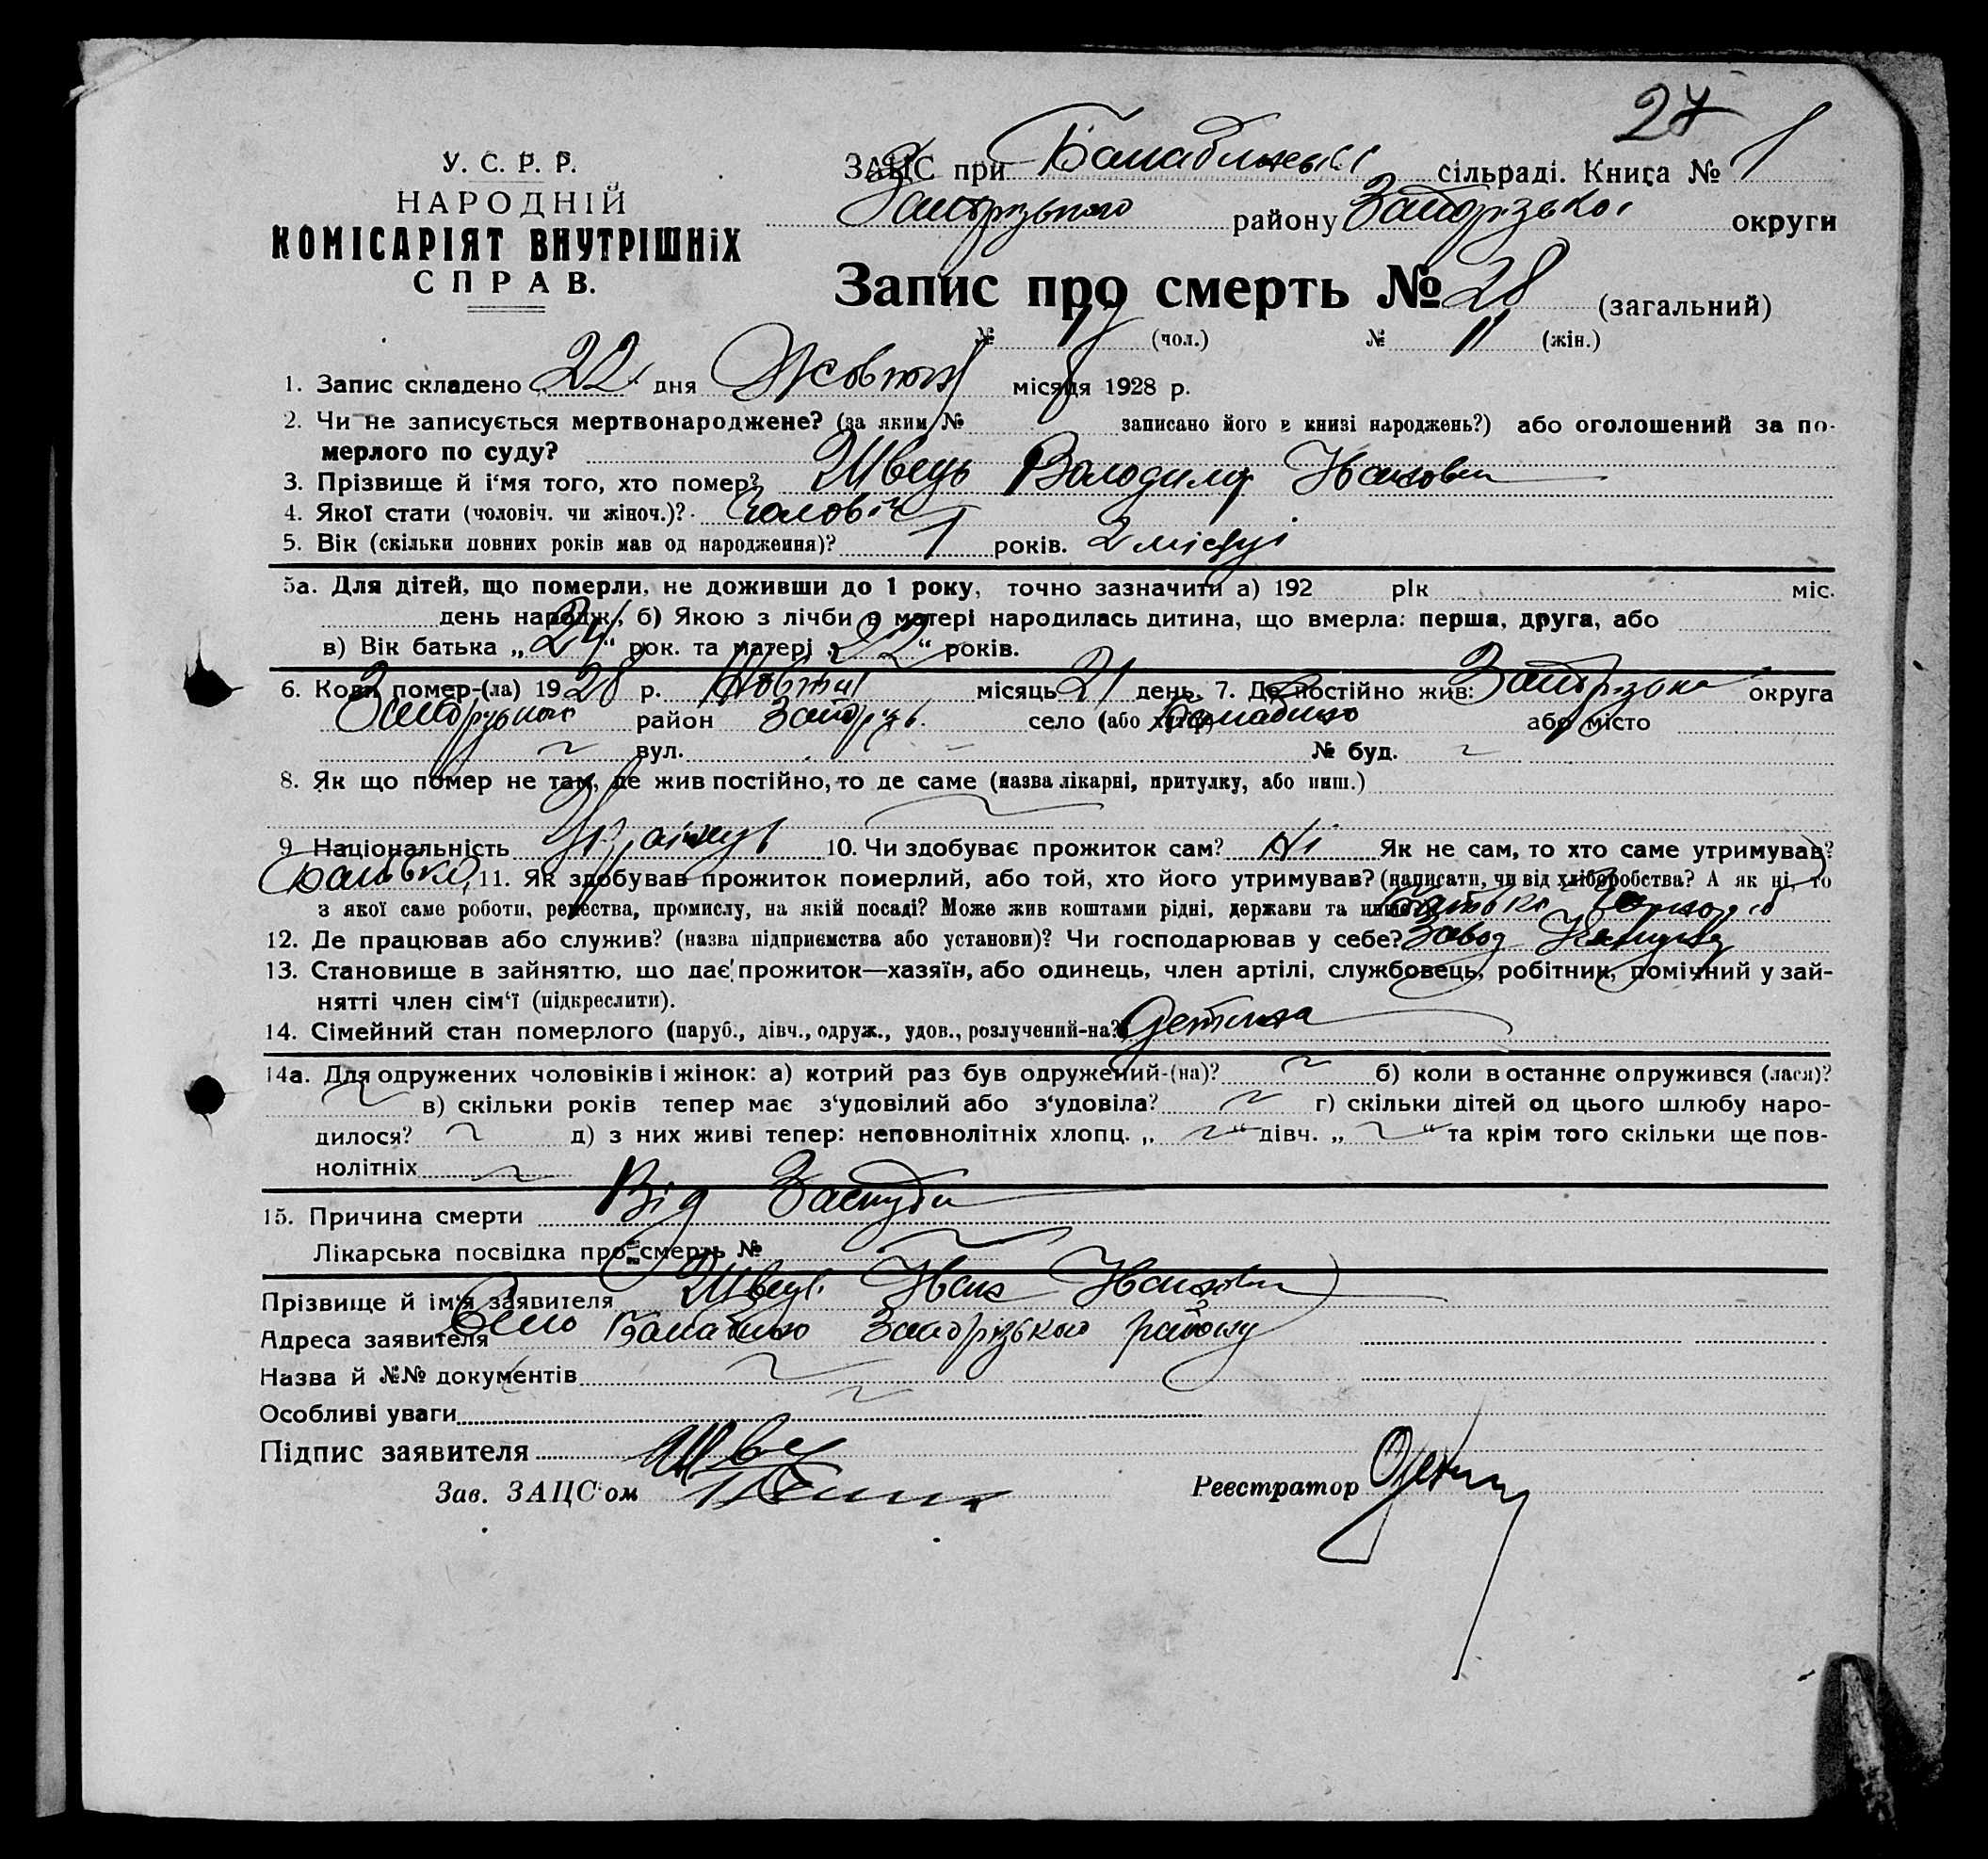 27
У. С. Р. Р.
НАРОДНІЙ
КОМІСАРІЯТ ВНУТРІШНіХ
СПРАВ.
ЗАЦС при Балабинські сільраді. Книга № 1
Запорізького району Запорізької округи
Запис про смерть № 28 (загальний)
№ 17 (чол.) № 11 (жін.)
1. Запис складено „22" дня Жовтня місяця 1928 р.
2. Чи не записується мертвонароджене? (за яким № записано його в книзі народжень?) або оголошений за по-
мерлого по суду?
3. Прізвище й і'мя того, хто помер? Швець Володимир Іванович
4. Якої стати (чоловіч. чи жіноч.)? Чоловіч
5. Вік (скільки повних років мав од народження)? 1 років. 2 місяці
5а. Для дітей, що померли, не доживши до 1 року, точно зазначити а) 192 рік міс.
день народж., б) Якою з лічби в матері народилась дитина, що вмерла: перша, друга, або
в) Вік батька „24" рок. та матері „22" років.
6. Коли помер-(ла) 1928 р. Жовтня місяць 21 день. 7. Де постійно жив: Запорізька округа
Запорізького район Запоріз. село (або хутір) Балабино або місто
вул. № буд.
8. Як що помер не там, де жив постійно, то де саме (назва лікарні, притулку, або инш.)
9. Національність Українець 10. Чи здобуває прожиток сам? Ні Як не сам, то хто саме утримував?
Батько 11. Як здобував прожиток померлий, або той, хто його утримував? (написати, чи від хліборобства? А як ні, то
з якої саме роботи, ремества, промислу, на якій посаді? Може жив коштами рідні, держави та инше) Батько
12. Де працював або служив? (назва підприємства або установи)? Чи господарював у себе? Завод
13. Становище в зайняттю, що дає прожиток—хазяїн, або одинець, член артілі, службовець, робітник, помічний у зай-
нятті член сім'ї (підкреслити).
14. Сімейний стан померлого (паруб., дівч., одруж., удов., розлучений-на?) Детина
14а. Для одружених чоловіків і жінок: а) котрий раз був одружений-(на)? б) коли в останнє одружився (лася)?
в) скільки років тепер має з'удовілий або з'удовіла? г) скільки дітей од цього шлюбу наро-
дилося? д) з них живі тепер: неповнолітніх хлопц. „ " дівч. „ " та крім того скільки ще пов-
нолітніх
15. Причина смерти Від Застуди
Лікарська посвідка про смерть №
Прізвище й ім'я заявителя Швець Іван Іванович
Адреса заявителя Село Балабино Запорізького району
Назва й №№ документів
Особливі уваги
Підпис заявителя Швец
Зав. ЗАЦС'ом
Реєстратор